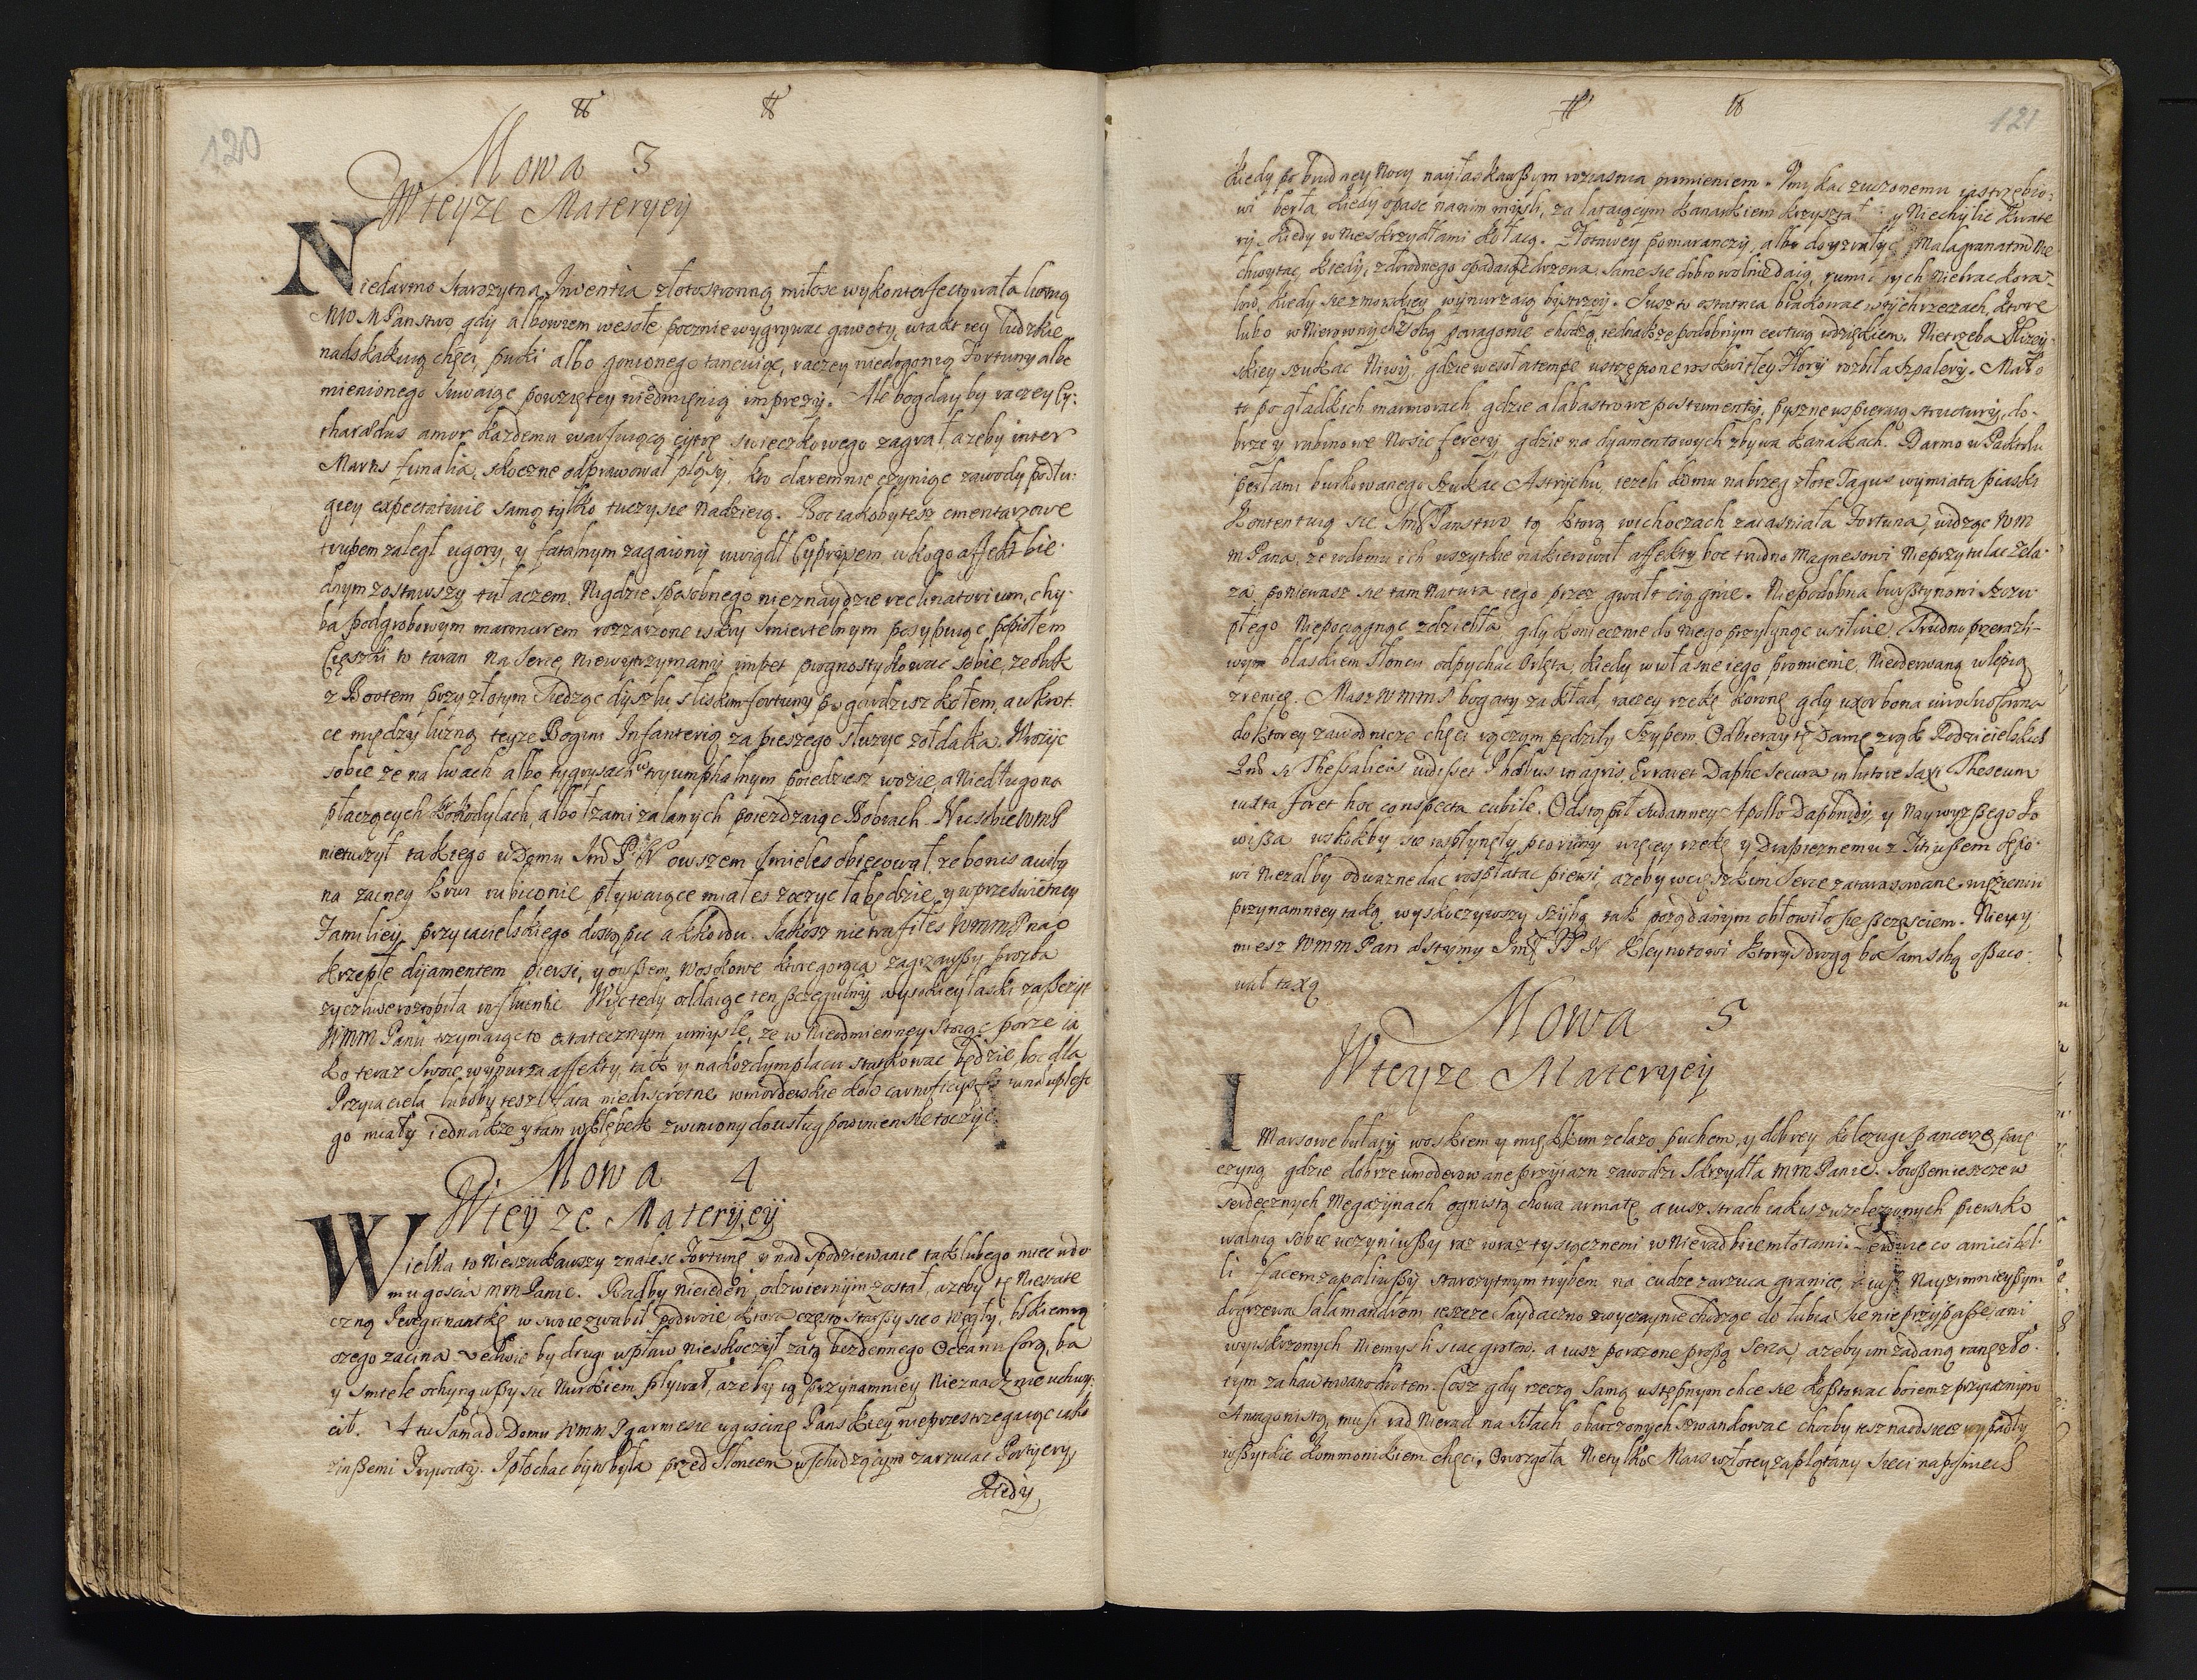 120
Mowa 3
Wteyze Materyey
Niedarmo Starozytna Inventia złotostronną miłosc wykonterfectowała lutnią
MWMPanstwo gdy albowiem wesołe pocznie wygrywac gawoty, wtakt iey ludzkie
nadskakuią chęci, puki albo gonionego tancuiąc, raczey niedogonią Fortuny albo
mienionego powziętey nieodmienią imprezy. Ale bogdayby raczey Cy-
tharædus amor kazdemu cytrę swieczkowego zagrał, azeby inter
Martis funalia, skoczne odprawował pląsy, kto daremnie czyniąc zawody podłu-
giey expectatiwie samą tylko tuczy sie nadzieią. Boc iakobytesz cmentarzowe
trupem zaległ ugory, y fatalnym zagaiony uwiądł Cyprysem ukogo affekt bie-
dnym zostawszy tułaczem, Nigdzie sposobnego nieznaydzie reclinatorium, chy-
ba podgrobowym marmurem rozzarzone iskry smiertelnym posypuiąc popiołem
Cięszki to taran na serce, niewytrzymany impet prognostykowac sobie, ze obok
z Bootem przy złotym siedząc dyszlu sliskim fortuny pogardzisz kołem, a wkrot-
ce między luzną teyze Bogini Infanterią za pieszego słuzyc zołdaka. Wrozyc
sobie ze na lwach albo tygrysach w tryumphalnym poiedziesz wozie, a Niedługo na
płaczących Krokodylach, albo łzami zalanych poiezdzaiąc Bobrach. Nic sobie WmP
nietuszył takiego wDomu Jm P: N owszem smieles obiecował, ze bonis avity
na zacney krwi rubiconie pływaiące miałes zoczyc łabędzie, y w przeswietney
Familiey przyiacielskiego dostąpic akkordu. Jakosz nie trafiłes WmmP na
krzepłe dyiamentem piersi, y owszem woskowe ktore gorącą zagrzawszy prozba
zyczliwe rozrobiła influentie. Więc tedy oddaiąc ten szczegulny wysokiey łaski zaszczyt
WmmPanu trzymaięc to o statecznym umysle, ze w nieodmienney stoiąc porze ia
ko teraz swoie wynurza affekty, tak y na kozdym placu statkowac będzie, boc dla
Przyiaciela luboby tesz fata niediscretne wmorderskie koło
go miały iednakze y tam wkłębek zwiniony do usług powinien sie toczyc.
Mowa 4
Wteyze Materyey
Wielka to Nieszukawszy znalesc Fortunę y nad spodziewanie tak lubego miec udo
mu goscia mmPanie. Radby nieieden odzwiernym został, azeby tę niestate
czną Peregrinantkę w swoie zwabił podwoie ktora często starszy sie o węgły,
ozego zacina. Ledwie by drugi wpław nieskoczył zatą bezdennego Oceanu Corą, ba
y smiele ochynąwszy sie Nurkiem pływał, azeby ią przynamniey nieznacznie uchwy-
cił. A tu sama do Domu WmmP garniesie ugoscinę Panskiey, nieprzestrzegaiąc iako
zinszemi Prywaty. Spłochac by to była przed słoncem wschodzącym zarzucac Portyery,
Kiedy

121
kiedy po brudney Nocy nayłaskawszym roziasnia promieniem. Umykac zuczonemu iastrzębio-
wi berła, kiedy opasc nanim mysli, za lataiącym kanarkiem kryształ y Niechylic Kwate
ry, kiedy w nie skrzydłami kołacą. Złotawey pomaranczy, albo doyzrałych Malagranatow nie
chwytac, kiedy z dorodnego opadaiąc drzewa, same sie dobrowolnie daią, rumianych niebrac kora-
low, kiedy sie z morskiey wynurzaią bystrzy. Jusz to ostatnia brakowac wtych rzeczach, ktore
lubo w nierownych z sobą paragonie chodzą, iednaksze podobnym cechuią wdziękiem. Nietrzeba Elizey-
skiey szukac Niwy, gdzie wesoła tempe ustrzępione roskwitłey Flory rozbiła szpalery. Mało
to po gładkich marmorach, gdzie alabastrowe postumenty, pyszne wspieraią structury, do-
brze y rubinowe nosic ferety, gdzie na dyamentowych zbywa kanakach. Darmo w Paktolu
perłami burkowanego szukac Astrychu, iezeli komu na brzeg złote Tagus wymiata piaski
Kontentuią sie Ich Panstwo tą ktorą wichoczach zaiasniała Fortuna, widząc Wm
mPana, ze wdomu ich wszytkie nakierował affekty boc trudno Magnesowi nieprzytulac zela-
za, poniewasz sie tam natura iego przez gwałt ciągnie. Niepodobna bursztynowi szczu-
płego niepociągnąc zdziebła, gdy koniecznie do niego przylgnąc usiłuie. Trudno przerazli-
wym blaskiem słoncu odpychac Orlęta, kiedy w własne iego promienie, nieoderwaną wlepią
zrenicę. Masz Wmm P bogaty zakład, raczey rzekę koronę gdy uxor bona viro suo corona
do ktorey zawodnicze chęci rączym pędziły szypem. Odbieray tę Damę z rąk Rodzicielskich
Qnd si Thessalicis vidisset Phœbus in agris, Erraret Daphne secura in litore saxi Theseum
iuxta foret hoc conspecta cubile. Odstąpił cudanney Apollo Daphnidy, y Naywyzszego Jo
wisza wskokby sie rospłynęły pioruny więcey rzekę y Drapieznemu z Tityusem sępo-
wi niezalby odwaznie dac rospłatac piersi, azeby wcięszkim serce zatarassowane więzieniu
przynamniey taką wyskoczywszy szybą tak poządanym obłowiło sie szczęsciem. Niewy
miesz WmmPan Astymy Jm PP N kleynotowi ktorys drogą boc sam sobą oszaco-
wał taxą
Mowa 5
Wteyze Materyey
I Marsowe bułaty woskiem y miękkim zelazo puchem, y dobrey kolczugi pancerze paię
czyną gdzie dobrze umoderowane przyiazn zawodzi skrzydła mmPanie. Jowszem ieszcze w
serdecznych Megazynach ognistą chowa armatę a iusz strach iakis z uzelezionych piersi ko
walnią sobie uczyniwszy raz wraz tysiącznemi w nie radbił młotami. Ledwie co amicibel-
li facem zapaliwszy starozytnym trybem na cudze zarzuca granice, iusz Nayzimnieyszym
dogrzewa Salamandrom ieszcze Saydaczno zwyczaynie chodząc do łubia sie nieprzypasze ani
wyiskrzonych Niemysli siac grotow, a iusz porazone proszą serca, azeby im zadaną ranę zło-
tym zahawtowano drotem. Cosz gdy rzeczą samą ustępnym chce sie kosztowac boiem z przyiaznym
Antagonistą musi rad nierad na siłach obarczonych szwankowac chocby tesz naodsiecz wypadły
wszytkie kommonikiem chęci, Owozgoła Nietylkoc Mars w złotey zaplątany sieci naposmiech